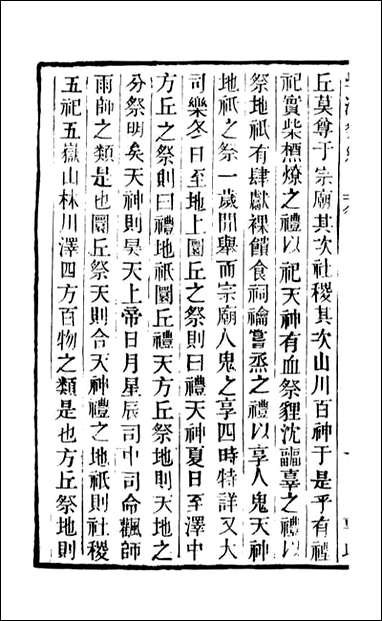 丘莫尊于宗廟其次社稷其次山川百神于是乎有禋
祀實柴槱燎之禮以祀天神有血祭貍沈疈辜之禮以
祭地祇有肆獻祼饋食祠禴嘗烝之禮以享人鬼天神
地祇之祭一歲間舉而宗廟人鬼之享四時特詳又大
司樂冬日至地上圜丘之祭則曰禮天神夏日至澤中
方丘之祭則曰禮地祇圜丘禮天方丘祭地則天地之
分祭明矣天神則昊天上帝日月星辰司中司命飌師
雨師之類是也圜丘祭天則合天神禮之地祇則社稷
五祀五嶽山林川澤四方百物之類是也方丘祭地則